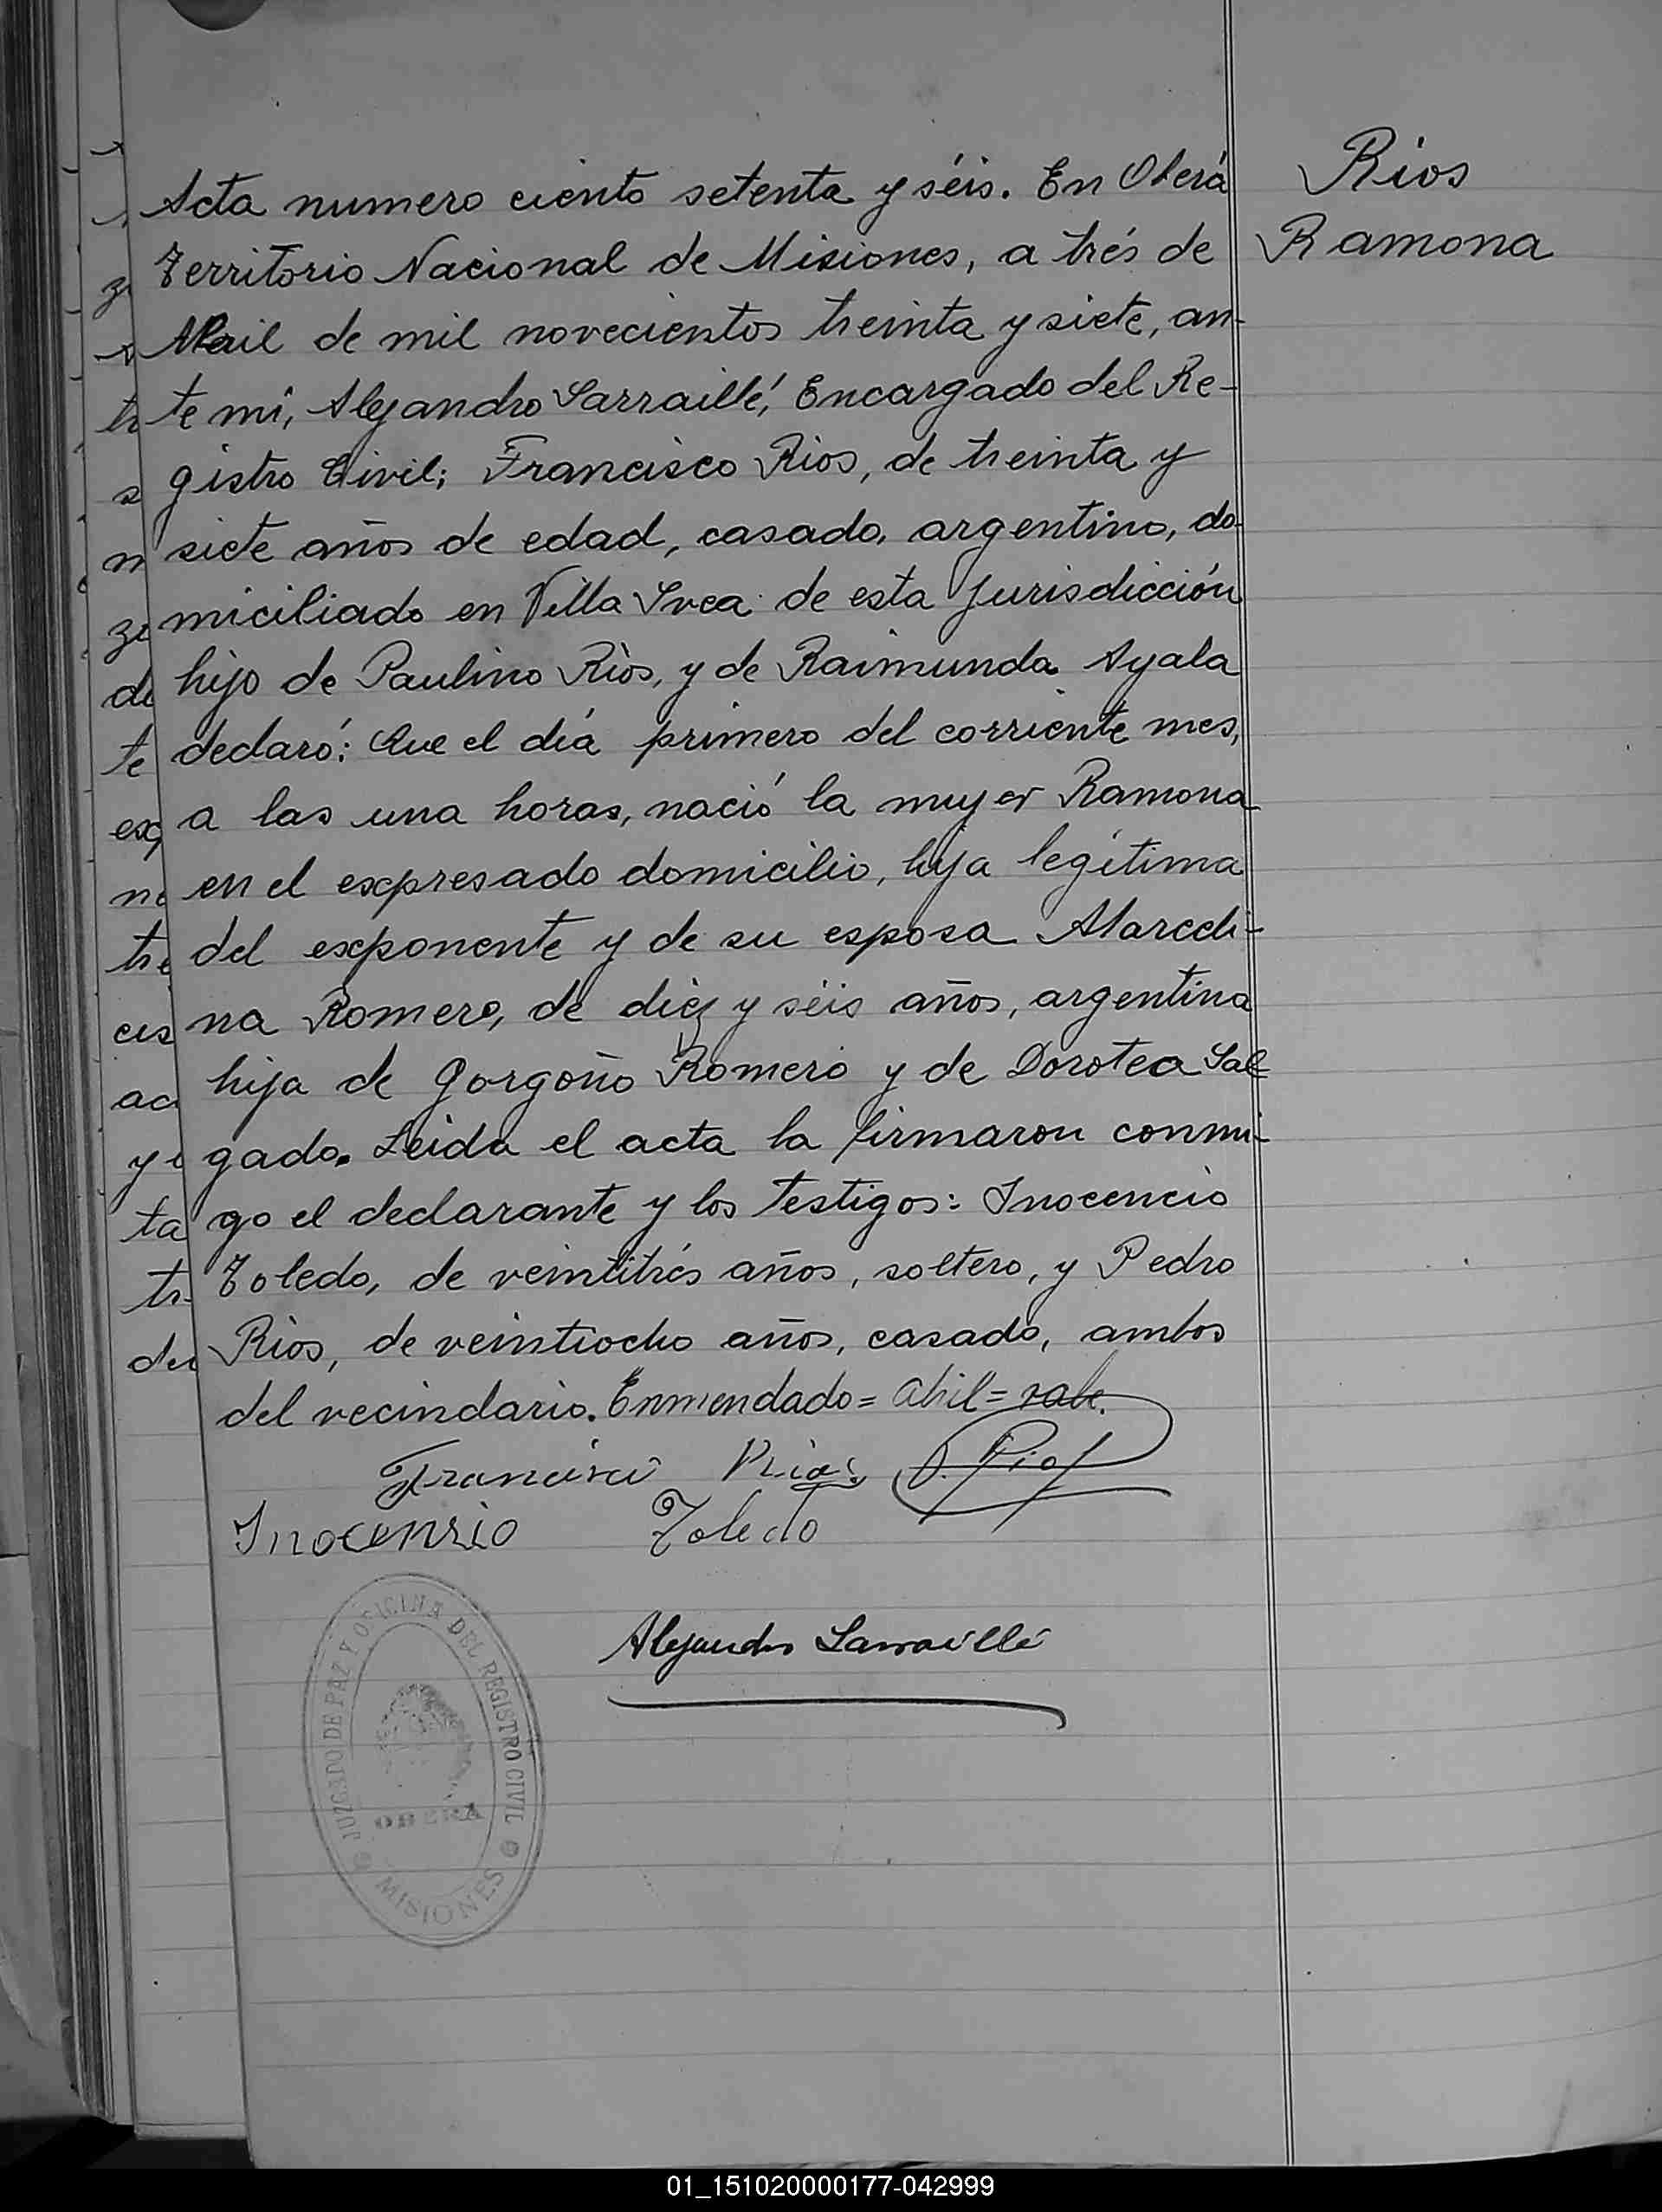 Rios
Ramona
Acta numero ciento setenta y séis. En Oberá
Territorio Nacional de Misiones, a trés de
Abril de mil novecientos treinta y siete, an-
te mí, Alejandro Sarraillé, Encargado del Re-
gistro Civil; Francisco Rios, de treinta y
siete años de edad, casado, argentino, do-
miciliado en Villa Svea de esta Jurisdicción
hijo de Paulino Rios, y de Raimunda Ayala
declaró: Que el día primero del corriente mes,
a las una horas, nació la mujer Ramona
en el expresado domicilio, hija legítima
del exponente y de su esposa Marceli-
na Romero, de diez y séis años, argentina
hija de Gorgoño Romero y de Dorotea Sal-
gado. Leida el acta la firmaron conmi-
go el declarante y los testigos: Inocencio
Toledo, de veintitrés años, soltero, y Pedro
Rios, de veintiocho años, casado, ambos
del vecindario. Enmendado= abril= vale.
Francisco Rios P. Rios
Inocensio Toledo
Alejandro Sarraillé
JUZGADO DE PAZ Y OFICINA DEL REGISTRO CIVIL
OBERA
MISIONES
01_151020000177-042999